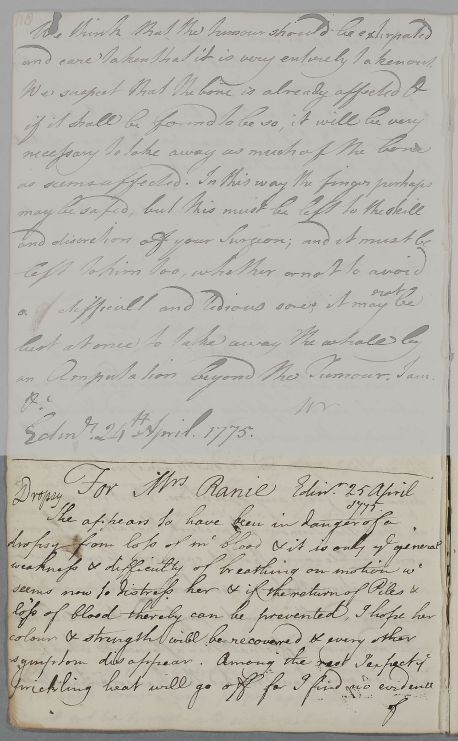 We think that the tumour should be extirpated
and care taken that it is very entirely taken out.
We suspect that the bone is already affected &
if it shall be found to be so, it will be very
necessary to take away as much of the bone
as seems affected. In this way the finger perhaps
may be safed, but this must be left to the skill
and discretion of your Surgeon; and it must be
left to him too, whether or not to avoid
a difficult and tedious sore, it may not be
best at once to take away the whole by
an Amputation beyond the Tumour. I am.
&c
Edinr. 24th April. 1775.
Dropsy For Mrs Ranie Edinr. 25 April
1775
She appears to have been in danger of a
dropsy from loss of mc blood & it is only ye general
weakness & difficulty of breathing on motion wc
seems now to distress her & if the return of Piles &
loss of blood thereby can be prevented, I hope her
colour & strength will be recovered & every other
symptom disappear. Among the rest I expect ye
prickling heat will go off for I find no evidence
of